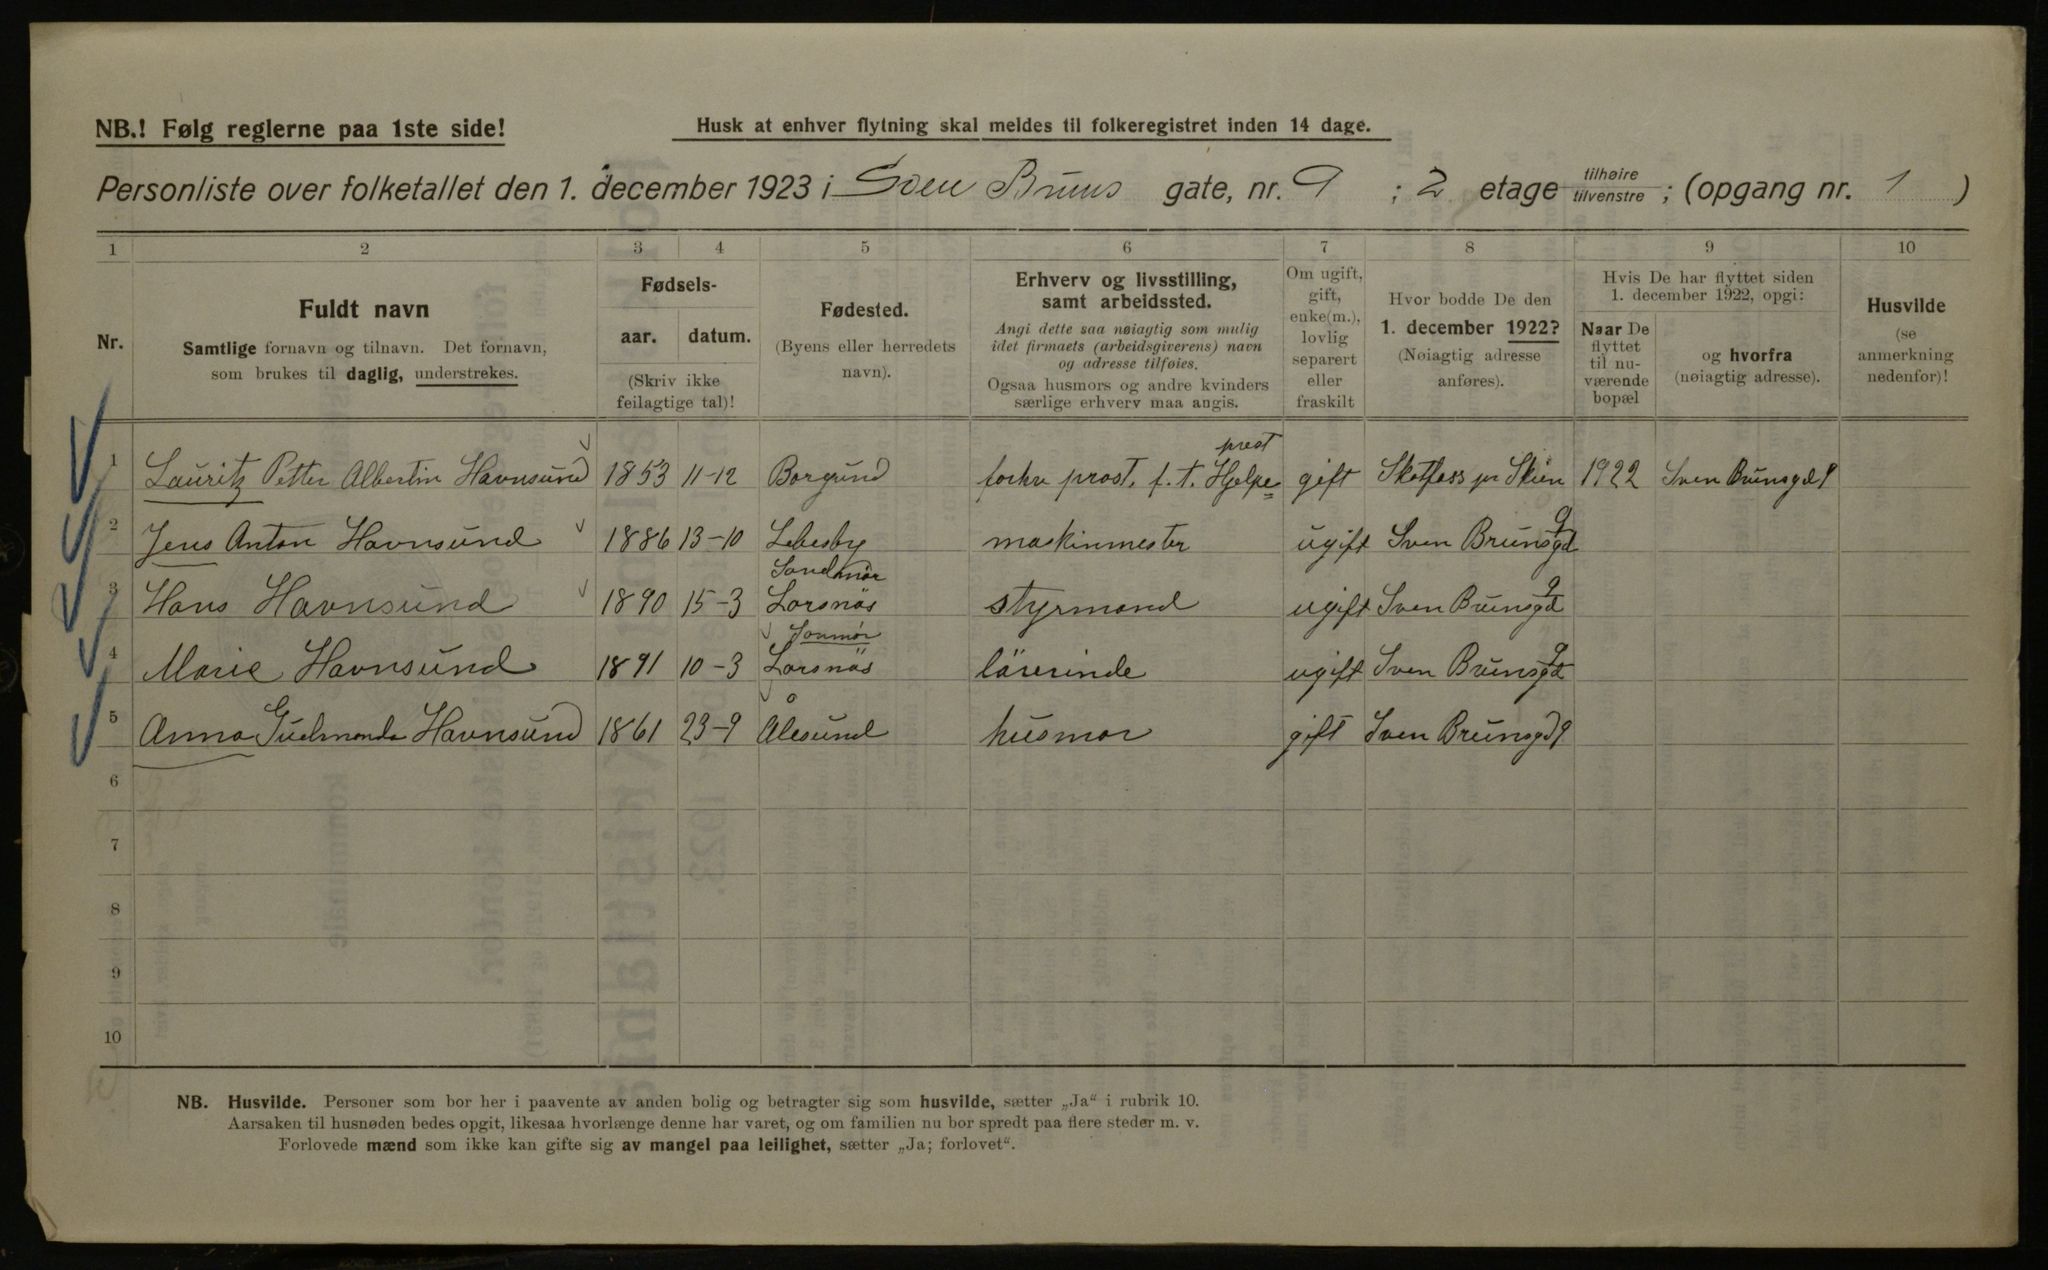 NB.! Følg reglerne paa 1ste side!
Husk at enhver flytning skal meldes til folkeregistret inden 14 dage.
Personliste over folketallet den 1. december 1923 i Sven Bruns gate, nr. 9 ; 2 etage tilhøire tilvenstre ; (opgang nr. 1 )
1 2 3 4 5 6 7 8 9 10
Nr.
Fuldt navn
Samtlige fornavn og tilnavn. Det fornavn,
som brukes til daglig, understrekes.
Fødsels-
aar. datum.
(Skriv ikke
feilagtige tal)!
Fødested.
(Byens eller herredets
navn).
Erhverv og livsstilling,
samt arbeidssted.
Angi dette saa nøiagtig som mulig
idet firmaets (arbeidsgiverens) navn
og adresse tilføies.
Ogsaa husmors og andre kvinders
særlige erhverv maa angis.
Om ugift,
gift,
enke(m.),
lovlig
separert
eller
fraskilt
Hvor bodde De den
1. december 1922?
(Nøiagtig adresse
anføres).
Hvis De har flyttet siden
1. december 1922, opgi:
Naar De
flyttet
til nu-
værende
bopæl
og hvorfra
(nøiagtig adresse).
Husvilde
(se
anmerkning
nedenfor)!
prest
1 Lauritz Petter Albertin Havnsund 1853 11-12 Borgund prost, f. t. Hjelpe= gift Skotfoss pr Skien 1922 Sven Brunsgd 9
2 Jens Anton Havnsund 1886 13-10 Lebesby maskinmester ugift Sven Brunsgd 9
Sondmör
3 Hans Havnsund 1890 15-3 Lorsnäs styrmand ugift Sven Brunsgd 9
Sonmör
4 Marie Havnsund 1891 10-3 Lorsnäs lärerinde ugift Sven Brunsgd 9
5 Anna Gudmanda Havnsund 1861 23-9 Ålesund husmor gift Sven Brunsgd 9
6
7
8
9
10
NB. Husvilde. Personer som bor her i paavente av anden bolig og betragter sig som husvilde, sætter „Ja“ i rubrik 10.
Aarsaken til husnøden bedes opgit, likesaa hvorlænge denne har varet, og om familien nu bor spredt paa flere steder m. v.
Forlovede mænd som ikke kan gifte sig av mangel paa leilighet, sætter „Ja; forlovet“.